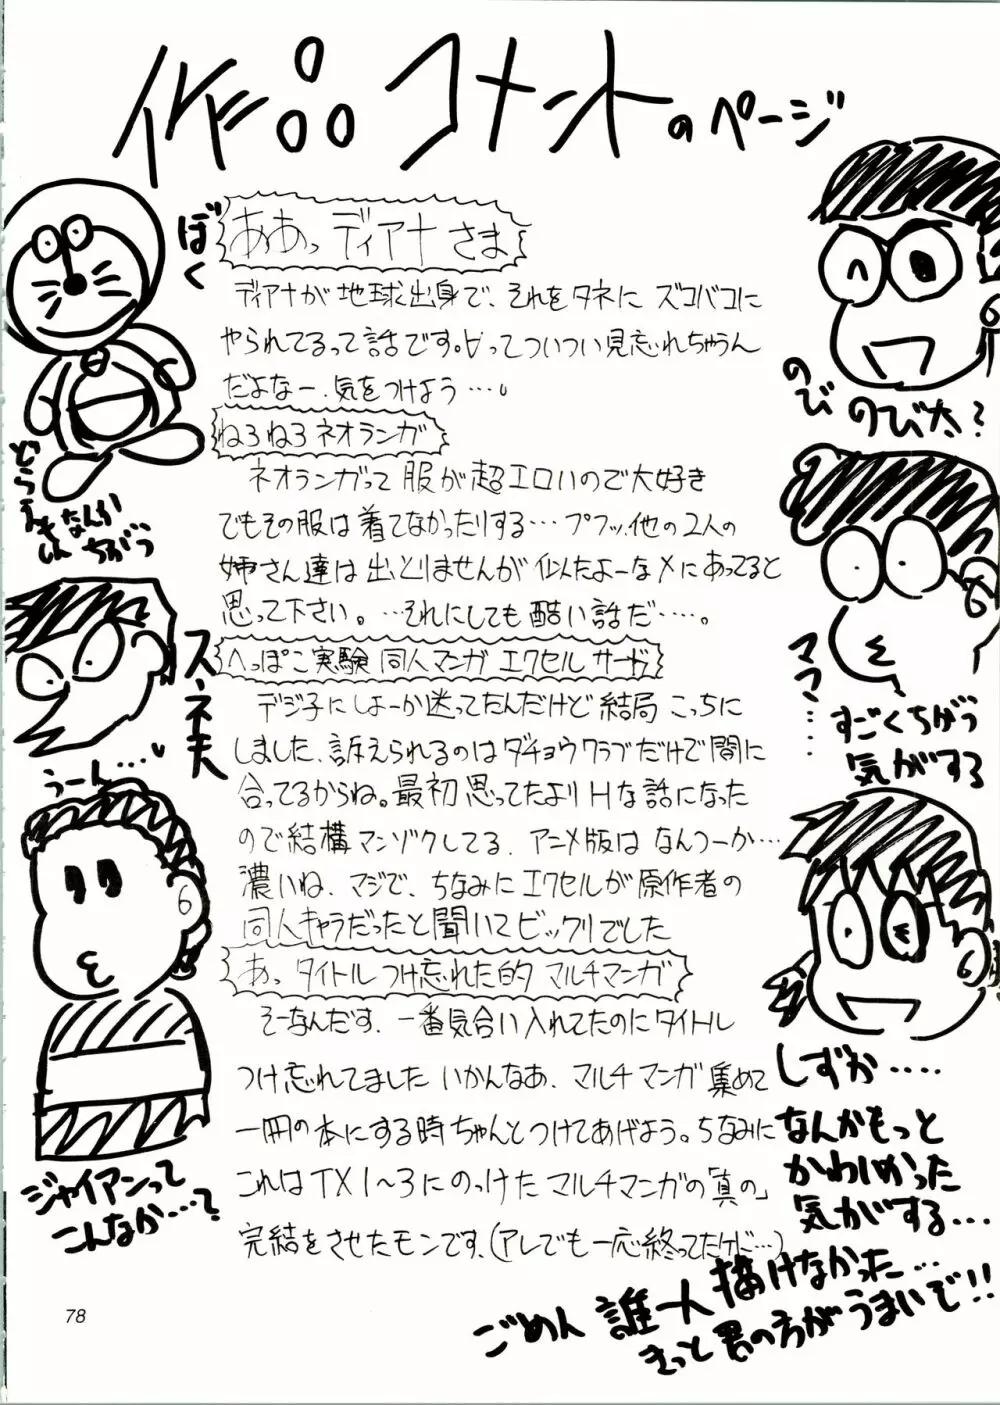 作品コメントのページ
ああっディアナさま
ディアナが地球出身で、それをタネにズコバコに
やられてるって話です。だってついつい見忘れちゃうん
だよなー、気をつけよう…。
ねろねろネオランガ
ネオランガって服が超エロいので大好き
でもその服は着てなかったりする…プフッ、他の2人の
姉さん達は出とりませんが似たよーなメにあってると
思って下さい。…それにしても酷い話だ……。
へっぽこ実験同人マンガ エクセルサーガ
デジ子にしよーか迷ってたんだけど結局こっちに
しました、訴えられるのはダチョウクラブだけで間に
合ってるからね。最初思ってたよりHな話になった
ので結構マンゾクしてる、アニメ版はなんつーか…
濃いね、マジで、ちなみにエクセルが原作者の
同人キャラだったと聞いてビックリでした
あっタイトルつけ忘れた的マルチマンガ
そーなんだす、一番気合い入れてたのにタイトル
つけ忘れてました いかんなあ、マルチマンガ集めて
一冊の本にする時ちゃんとつけてあげよう。ちなみに
これはTX1～3にのっけたマルチマンガの「真の」
完結をさせたモンです、(アレでも一応終ってたケド…)
ぼく
どらえもん
なんか
ちがう
スネ夫
うーん…
ジャイアンって
こんなか…?
のび
のび太?
ママ……
すごくちがう
気がする
しずか……
なんかもっと
かわいかった
気がする…
ごめん 誰一人描けなかった…
きっと君の方がうまいで!!
78